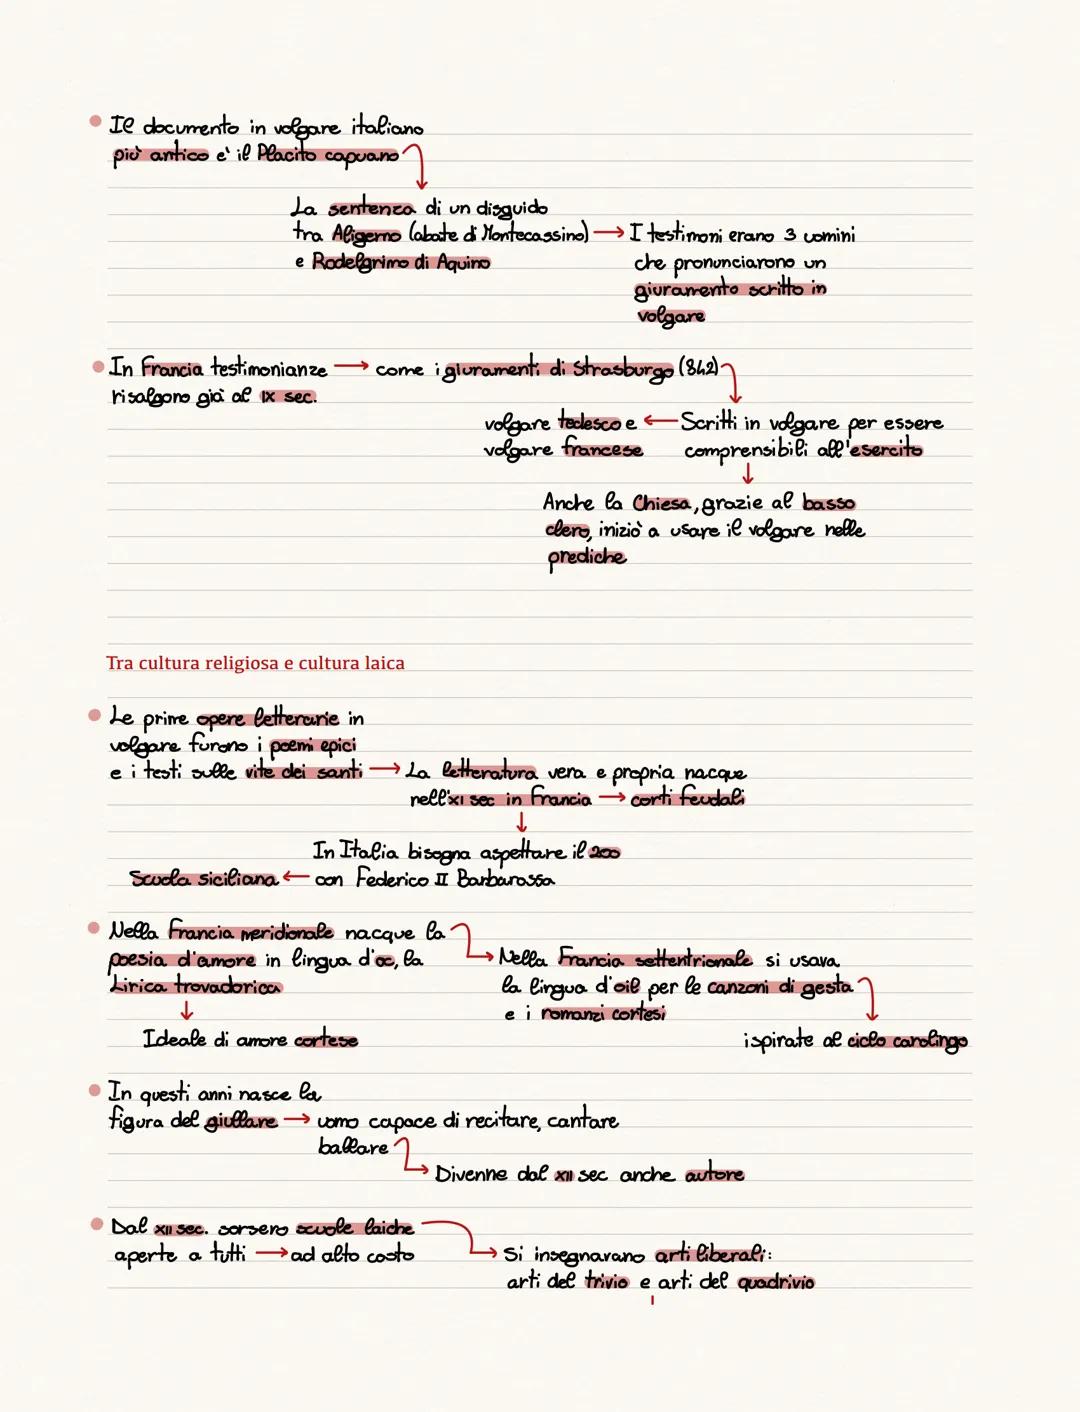 Il documento in volgare italiano
più antico e' il Placito capuano
La sentenza di un disguido
tra Aligerno (abate di Montecassino) → I testimoni erano 3 uomini
e Rodelgrimo di Aquino
che pronunciarono un
giuramento scritto in
volgare
In Francia testimonianze → come i giuramenti di Strasburgo (842)
risalgono già al IX sec.
volgare tedesco e ← Scritti in volgare per essere
volgare francese
comprensibili all'esercito
Anche la Chiesa, grazie al basso
clero, iniziò a usare il volgare nelle
prediche
Tra cultura religiosa e cultura laica
Le prime opere letterarie in
volgare furono i poemi epici
e i testi sulle vite dei santi → La letteratura vera e propria nacque
nell'XI sec in Francia → corti feudali
In Italia bisogna aspettare il 200
Scuola siciliana ← con Federico II Barbarossa
Nella Francia meridionale nacque la
poesia d'amore in lingua d'oc, la
Lirica trovadorica
Nella Francia settentrionale si usava
la lingua d'oil per le canzoni di gesta
e i romanzi cortesi
Ideale di amore cortese
ispirate al ciclo carolingo
In questi anni nasce la
figura del giullare → uomo capace di recitare, cantare
ballare
Divenne dal XII sec anche autore
Dal XII sec. sorsero scuole laiche
aperte a tutti → ad alto costo
Si insegnavano arti liberali:
arti del trivio e arti del quadrivio